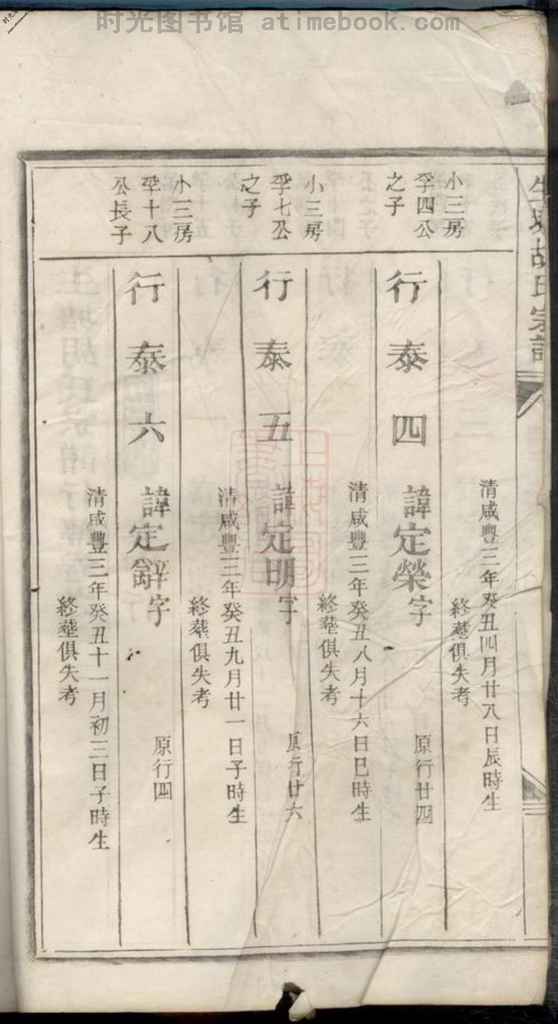 时光图书馆 atimebook.com
胡氏宗譜
清咸豐三年癸丑四月廿八日辰時生
終塟俱失考
小三房
孚四公
之子
行泰四
諱定榮字
原行廿四
清咸豐三年癸丑八月十六日巳時生
終塟俱失考
小三房
孚七公
之子
行泰五
諱定明字
原行廿六
清咸豐三年癸丑九月廿一日子時生
終塟俱失考
小三房
孚十八
公長子
行泰六
諱定辭字
原行四
清咸豐三年癸丑十一月初三日子時生
終塟俱失考